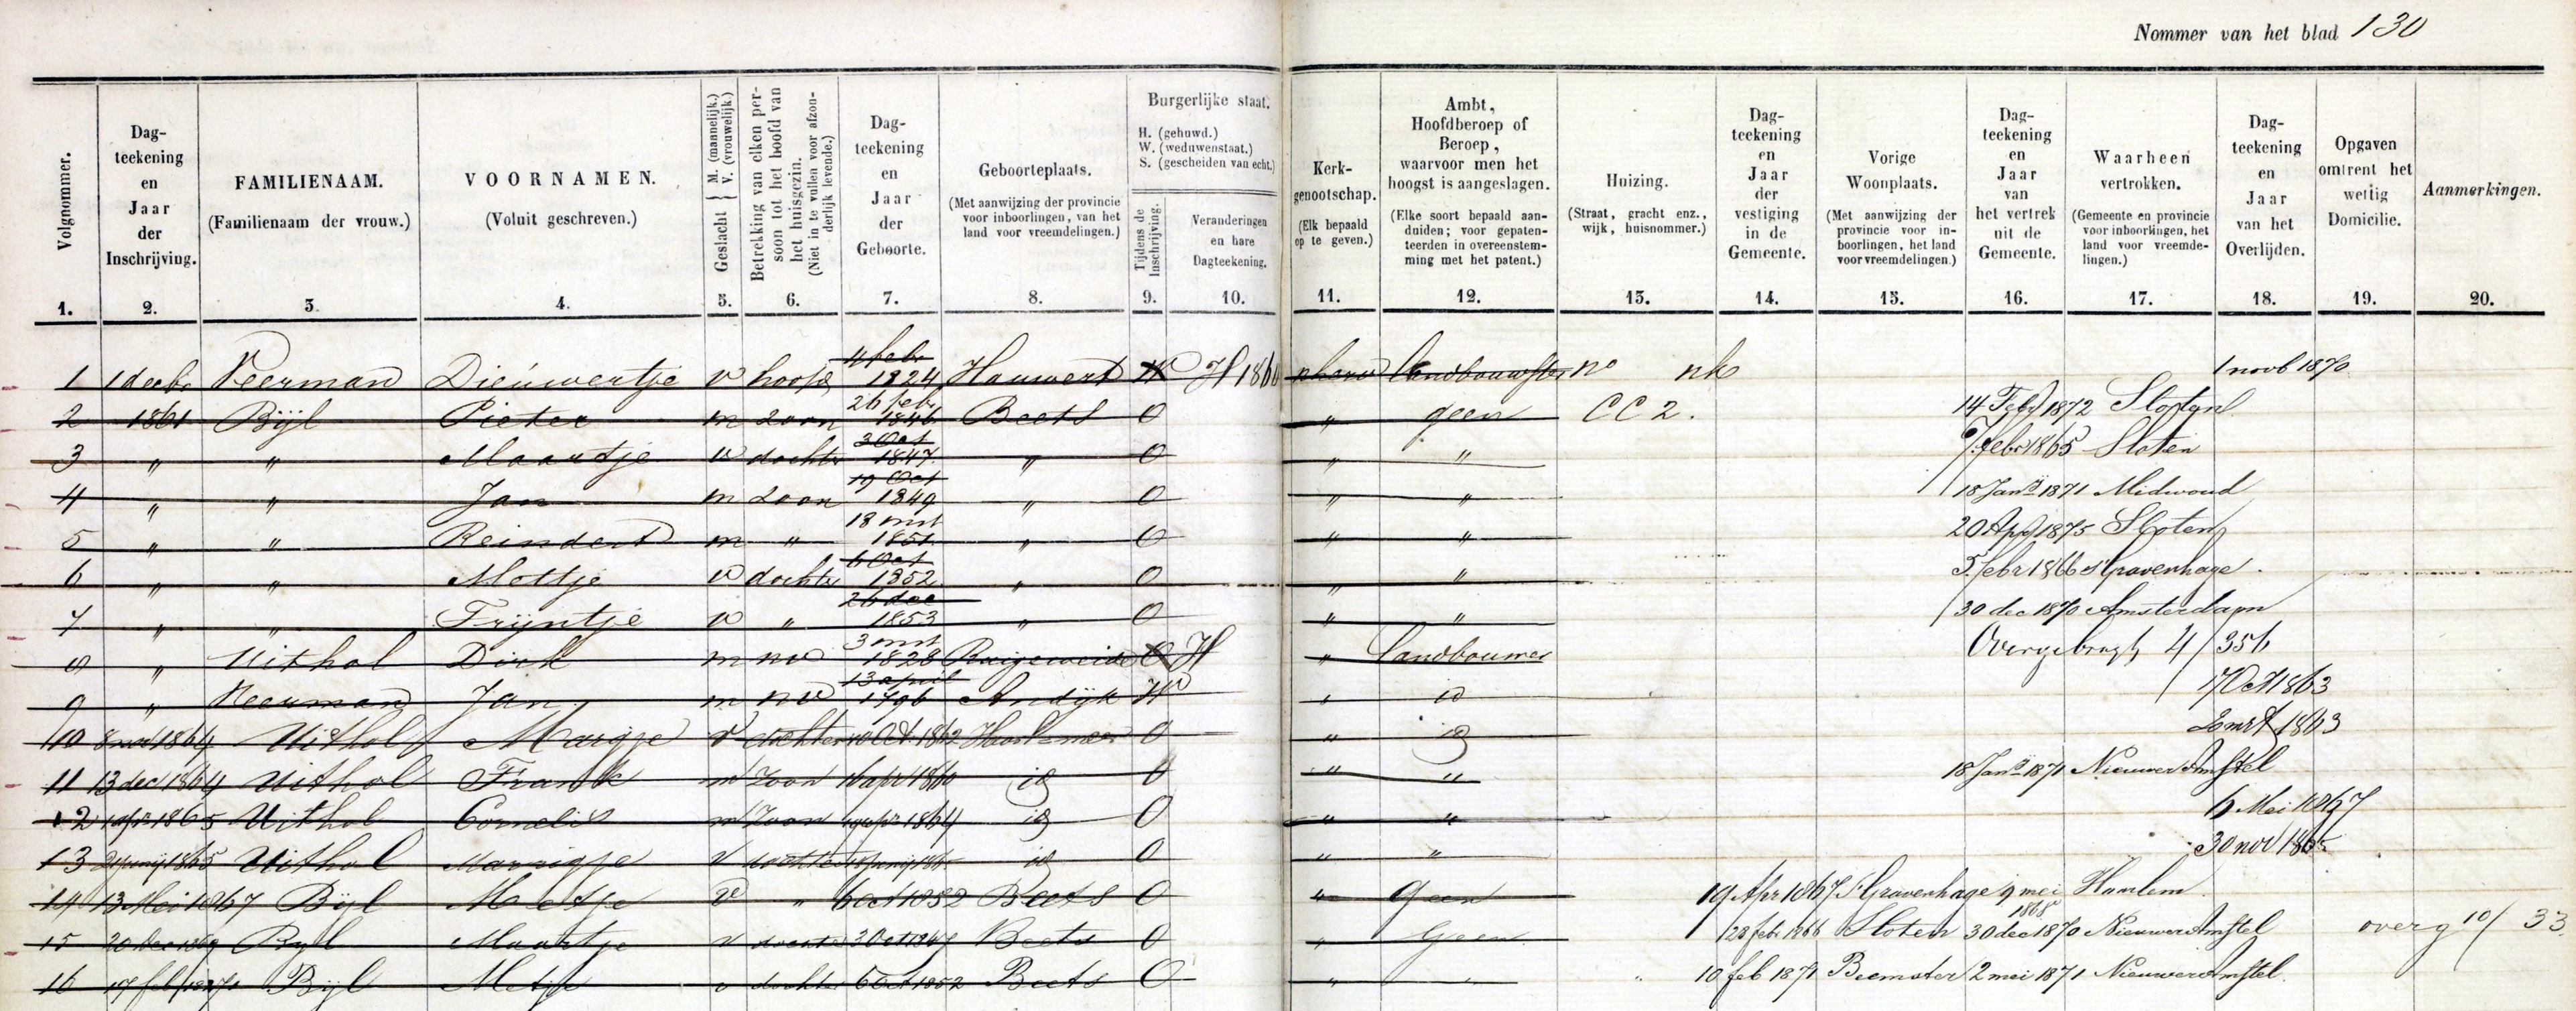 Nommer van het blad 130
Volgnommer.
1.
Dag-
teekening
en
Jaar
der
Inschrijving.
2.
FAMILIENAAM.
(Familienaam der vrouw.)
3.
VOORNAMEN.
(Voluit geschreven.)
4.
Geslacht { M. (mannelijk.) V. (vrouwelijk)
5.
Betrekking van elken per-
soon tot het hoofd van
het huisgezin.
(Niet in te vullen voor afzon-
derlijk levende.)
6.
Dag-
teekening
en
Jaar
der
Geboorte.
7.
Geboorteplaats.
(Met aanwijzing der provincie
voor inboorlingen, van het
land voor vreemdelingen.)
8.
Burgerlijke staat.
H. (gehuwd.)
W. (weduwenstaat.)
S. (gescheiden van echt.)
Tijdens de
Inschrijving.
9.
Veranderingen
en hare
Dagteekening.
10.
Kerk-
genootschap.
(Elk bepaald
op te geven.)
11.
Ambt,
Hoofdberoep of
Beroep,
waarvoor men het
hoogst is aangeslagen.
(Elke soort bepaald aan-
duiden; voor gepaten-
teerden in overeenstem-
ming met het patent.)
12.
Huizing.
(Straat, gracht enz.,
wijk, huisnommer.)
13.
Dag-
teekening
en
Jaar
der
vestiging
in de
Gemeente.
14.
Vorige
Woonplaats.
(Met aanwijzing der
provincie voor in-
boorlingen, het land
voor vreemdelingen.)
15.
Dag-
teekening
en
Jaar
van
het vertrek
uit de
Gemeente.
16.
Waarheen
vertrokken.
(Gemeente en provincie
voor inboorlingen, het
land voor vreemde-
lingen.)
17.
Dag-
teekening
en
Jaar
van het
Overlijden.
18.
Opgaven
omtrent het
wettig
Domicilie.
19.
Aanmerkingen.
20.
1 1 decbr Neerman Dieuwertje v hoofd 4 febr 1824 Hauwert W H landbouwster no nh 1 novb 1870
2 1861 Bijl Pieter m zoon 26 febr 1846 Beets O " geen CC 2. 14 Febr 1872 Sloten
3 " " Maartje v dochter 3 Oct 1847 " O " " 7 febr 1865 Sloten
4 " " Jan m zoon 19 Oct 1849 " O " " 18 Janij 1871 Midwoud
5 " " Reindert m " 18 mrt 1851 " O " " 20 Apl 1875 Sloten
6 " " Mettje v dochter 6 Oct 1852 " O " " 5 febr 1866 s'Gravenhage
7 " " Trijntje v " 26 dec 1853 " O " " 30 dec 1870 Amsterdam
8 " Uithol Dirk m nv 3 mrt 1828 Ruigeweide O H " Landbouwer Overgebragt 4/356
9 " Neerman Jan m nv 13 april 1796 Andijk W " id 17 Oct 1863
10 8 nov 1864 Uithol Margje v dochter 10 Oct 1862 Haarl meer O " id 2 mrt 1863
11 13 dec 1864 Uithol Frank m Zoon 16 apr 1860 id O " " 18 Janij 1871 Nieuwer Amstel
12 1 apr 1865 Uithol Cornelis m Zoon apr 1864 id O " " 6 Mei 1867
13 21 junij 1865 Uithol Marrigje v dochter id O " " 30 nov 1865
14 13 Mei 1867 Bijl Metje v " 6 oct 1852 Beets O " Geen 19 Apr 1867 s'Gravenhage 9 mei 1868 Haarlem
15 20 Dec 1869 Bijl Maartje v dochter 3 Oct 1847 Beets O " Geen 28 feb 1866 Sloten 30 dec 1870 Nieuwer Amstel overg 10/33
16 17 feb 1871 Bijl Metje v dochter 6 Oct 1852 Beets O " " 10 feb 1871 Beemster 2 mei 1871 Nieuwer Amstel